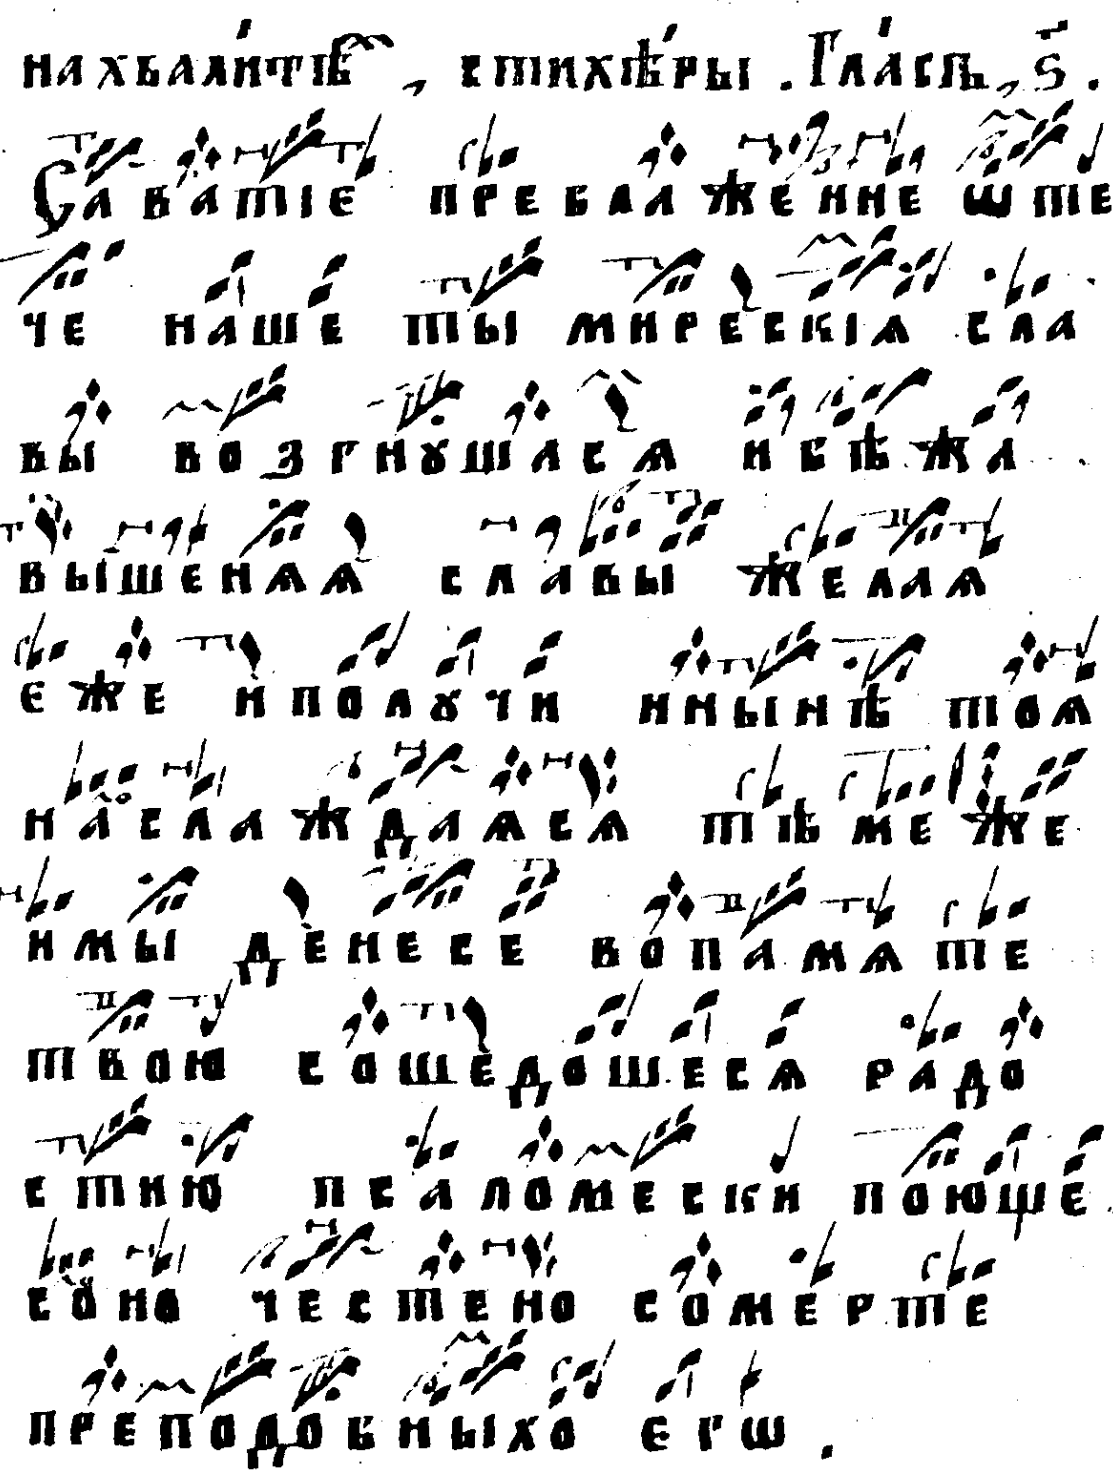 нахвалитѣ, стихѣры. Гласъ, ѕ҃.
Саватіє преблаженне ѡте
че наше ты мирескіѧ сла
вы возгнꙋшасѧ и бѣжа
вышенѧѧ славы желаѧ
єже и полꙋчи и нынѣ тоѧ
наслаждаѧсѧ тѣмеже
и мы денесе вопамѧте
твою сошедошесѧ радо
стию псаломески поюще
соно честено сомерте
преподобныхо єгѡ.